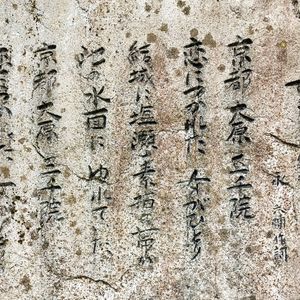 永 六輔作詞
京都 大原 三千院
恋につかれた 女がひとり
結城に塩瀬の素描の帯が
池の水面に ゆれてた
京都 大原 三千院